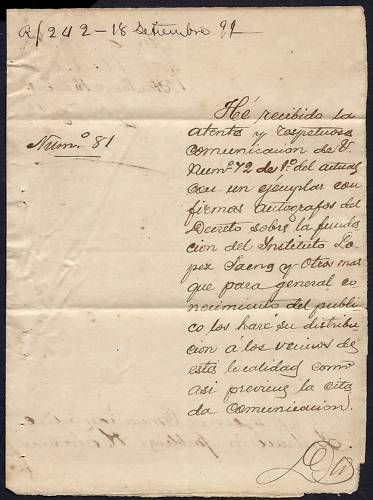 R/242-18 Setiembre 99
Hé recibido la
atenta y respetuosa
Num.º 81
comunicacion de V.
Num.º 72 de 1.º del actual
con un ejemplar con
firmas autografos del
Decreto sobre la funda
cion del Instituto Lo
pez Saenz y otros mas
que para general co
nocimiento del publi
co los haré su distribu
cion á los vecinos de
esta localidad como
asi previene la cita
da comunicacion.